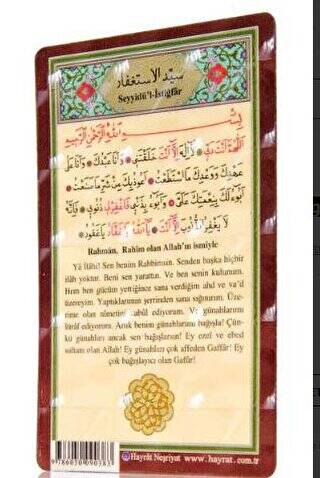 سيد الاستغفار
Seyyidü'l-İstiğfâr
بِسْمِ اللّٰهِ الرَّحْمٰنِ الرَّحِيمِ
اَللّٰهُمَّ اَنْتَ رَبِّي لَا اِلٰهَ اِلَّا اَنْتَ خَلَقْتَنِي وَاَنَا عَبْدُكَ وَاَنَا عَلٰى
عَهْدِكَ وَوَعْدِكَ مَا اسْتَطَعْتُ اَعُوذُ بِكَ مِنْ شَرِّ مَا صَنَعْتُ
اَبُوءُ لَكَ بِنِعْمَتِكَ عَلَيَّ وَاَبُوءُ بِذَنْبِي فَاغْفِرْ لِي ذُنُوبِي فَاِنَّهُ
لَا يَغْفِرُ الذُّنُوبَ اِلَّا اَنْتَ يَا غَفَّارُ يَا غَفُورُ
Rahmân, Rahîm olan Allah'ın ismiyle
Yâ İlâhî! Sen benim Rabbimsin. Senden başka hiçbir
ilâh yoktur. Beni sen yarattın. Ve ben senin kulunum.
Hem ben gücüm yettiğince sana verdiğim ahd ve va'd
üzereyim. Yaptıklarımın şerrinden sana sığınırım. Üze-
rime olan nîmetini kabûl ediyorum. Ve günahlarımı
îtirâf ediyorum. Artık benim günahlarımı bağışla! Çün-
kü günahları ancak sen bağışlarsın! Ey ezel ve ebed
sultanı olan Allah! Ey günahları çok affeden Gaffâr! Ey
çok bağışlayıcı olan Gafûr!
9786030090383
Hayrât Neşriyat www.hayrat.com.tr